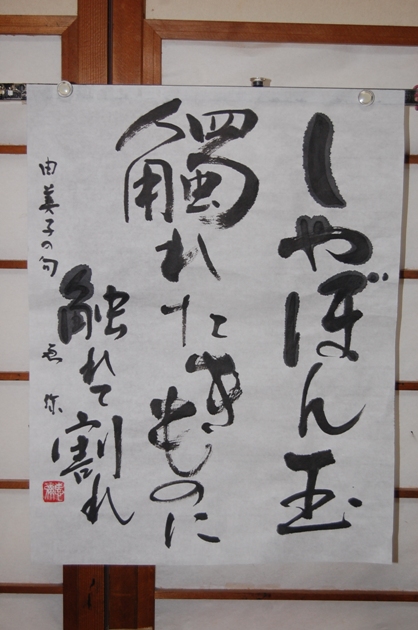 しやぼん玉
觸れたきものに
触れて割れ
由美子の句